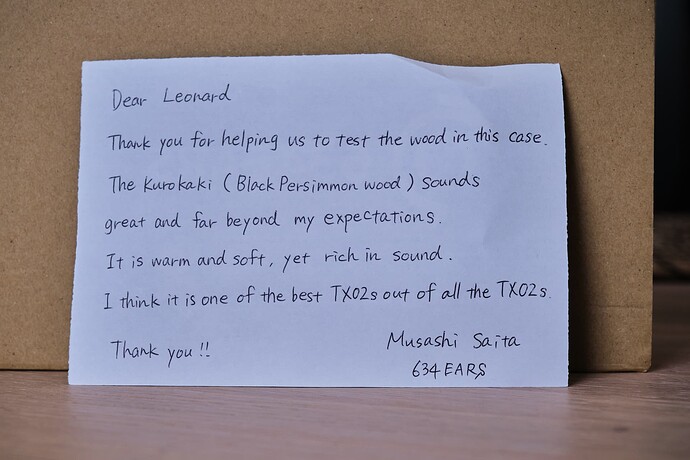 Dear Leonard
Thank you for helping us to test the wood in this case.
The Kurokaki ( Black Persimmon wood ) sounds
great and far beyond my expectations.
It is warm and soft, yet rich in sound.
I think it is one of the best TX02s out of all the TX02s.
Thank you !!
Musashi Saita
634EARS